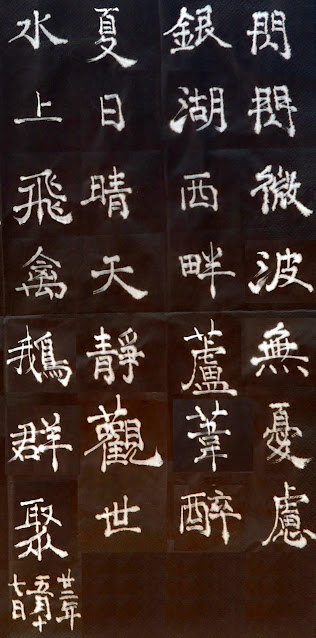 閃閃微波無憂慮
銀湖西畔蘆葦醉
夏日晴天靜觀世
水上飛禽鵝群聚
廿三年
五月十
七日